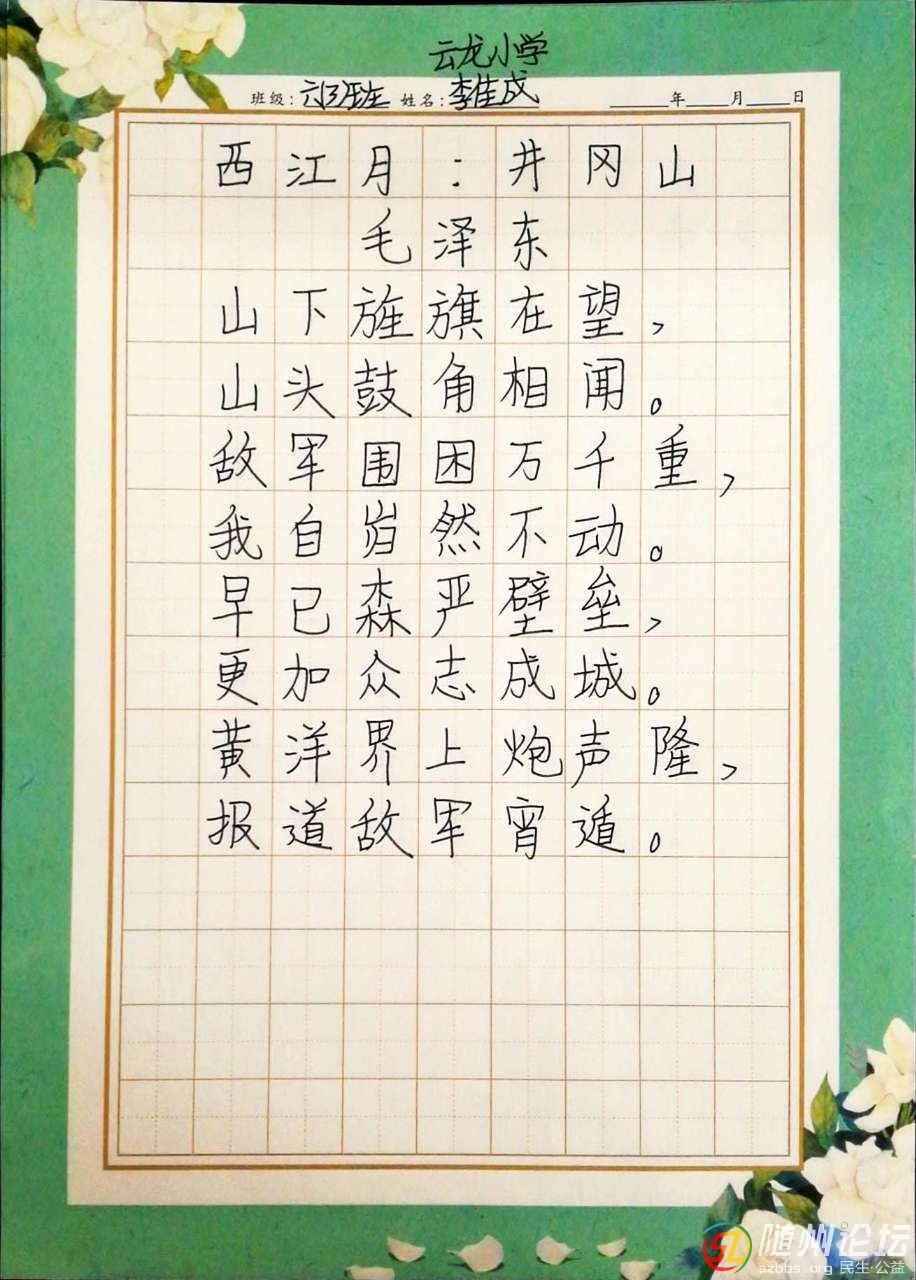 云龙小学
班级: 六(3)班 姓名: 李佳成 年 月 日
西江月：井冈山
毛泽东
山下旌旗在望，
山头鼓角相闻。
敌军围困万千重，
我自岿然不动。
早已森严壁垒，
更加众志成城。
黄洋界上炮声隆，
报道敌军宵遁。
随州论坛
szbbs.org 民生·公益